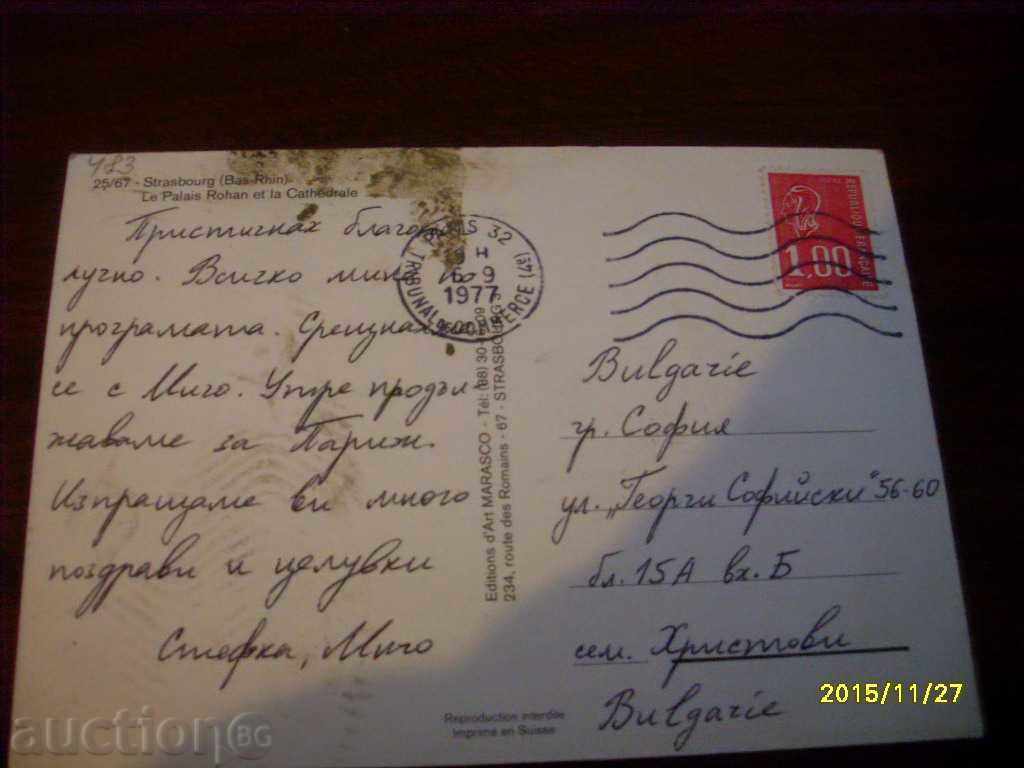 483
25/67 - Strasbourg (Bas-Rhin)
Le Palais Rohan et la Cathédrale
Пристигнах благопо-
лучно. Всичко мина по
програмата. Срещнах
се с Миго. Утре продъл-
жаваме за Париж.
Изпращаме ви много
поздрави и целувки
Стефка, Миго
PARIS 32
H
6-9
1977
TRIBUNAL COMMERCE (4e)
Editions d'Art MARASCO - Tél: (88) 30
234, route des Romains - 67 - STRASBOURG 3
REPUBLIQUE FRANÇAISE
1,00
Bulgarie
гр. София
ул. „Георги Софийски" 56-60
бл. 15А вх. Б
сем. Христови
Bulgarie
Reproduction interdite
Imprimé en Suisse
2015/11/27
auction BG